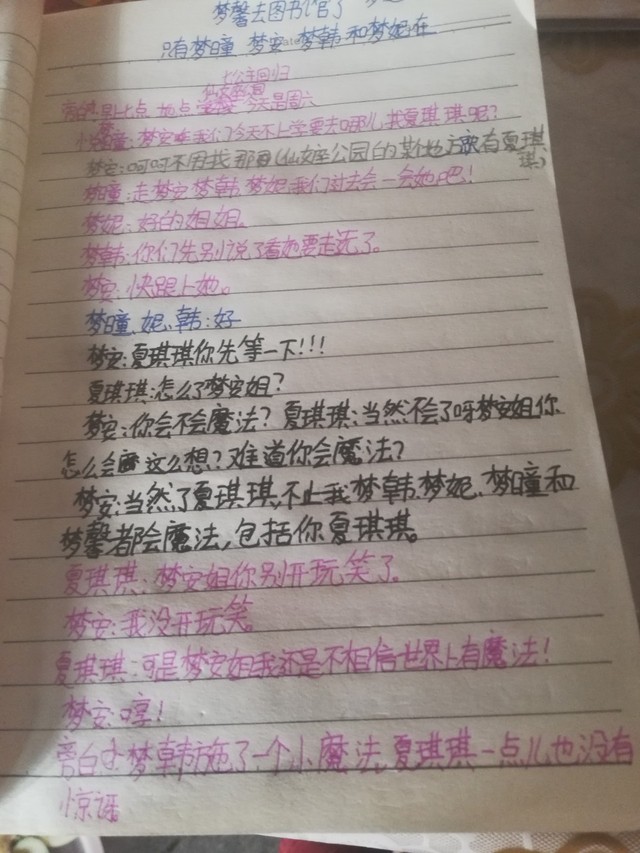 梦馨去图书馆了
只有梦瞳 梦安 梦韩和梦妮在
七公主回归
旁白:早上七点 地点 今天是周六
梦瞳:梦安咋我们今天不上学要去哪儿找夏琪琪呢?
梦安:呵呵不用找 那看(仙女座公园的某个地方有夏琪琪)
梦瞳:走梦安梦韩梦妮我们过去会一会她吧!
梦妮:好的姐姐。
梦韩:你们先别说了看她要走远了。
梦安:快跟上她。
梦瞳、妮、韩:好
梦安:夏琪琪你先等一下!!!
夏琪琪:怎么了梦安姐?
梦安:你会不会魔法?夏琪琪:当然不会了呀梦安姐你
怎么会这么想?难道你会魔法?
梦安:当然了夏琪琪,不止我梦韩、梦妮、梦瞳和
梦馨都会魔法,包括你夏琪琪。
夏琪琪:梦安姐你别开玩笑了。
梦安:我没开玩笑。
夏琪琪:可是梦安姐我还是不相信世界上有魔法!
梦安:哼!
旁白:梦韩施了一个小魔法,夏琪琪一点儿也没有
惊讶